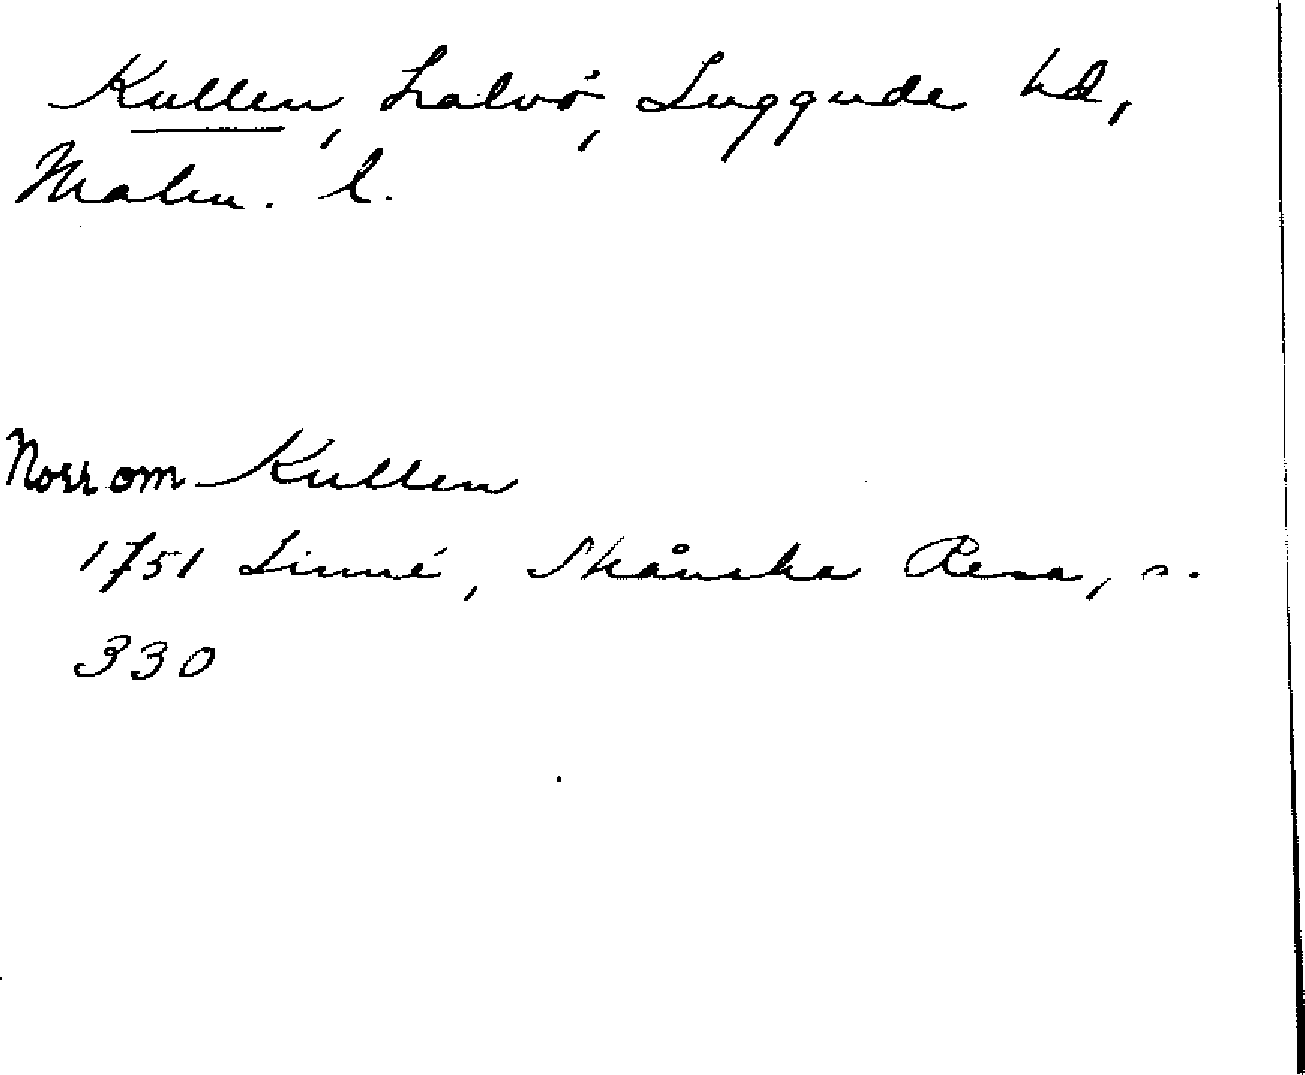 Kullen, halvö, Luggude hd,
Malm. l.
Norr om Kullen
1751 Linné, Skånska Resa, s.
330